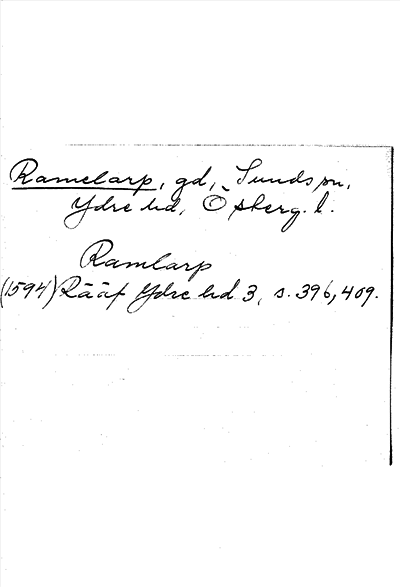 Ramelarp, gd, Sunds sn,
Ydre hd, Ö stberg. l.
Ramlarp
(1594) Rääf Ydre hd 3, s. 396, 409.